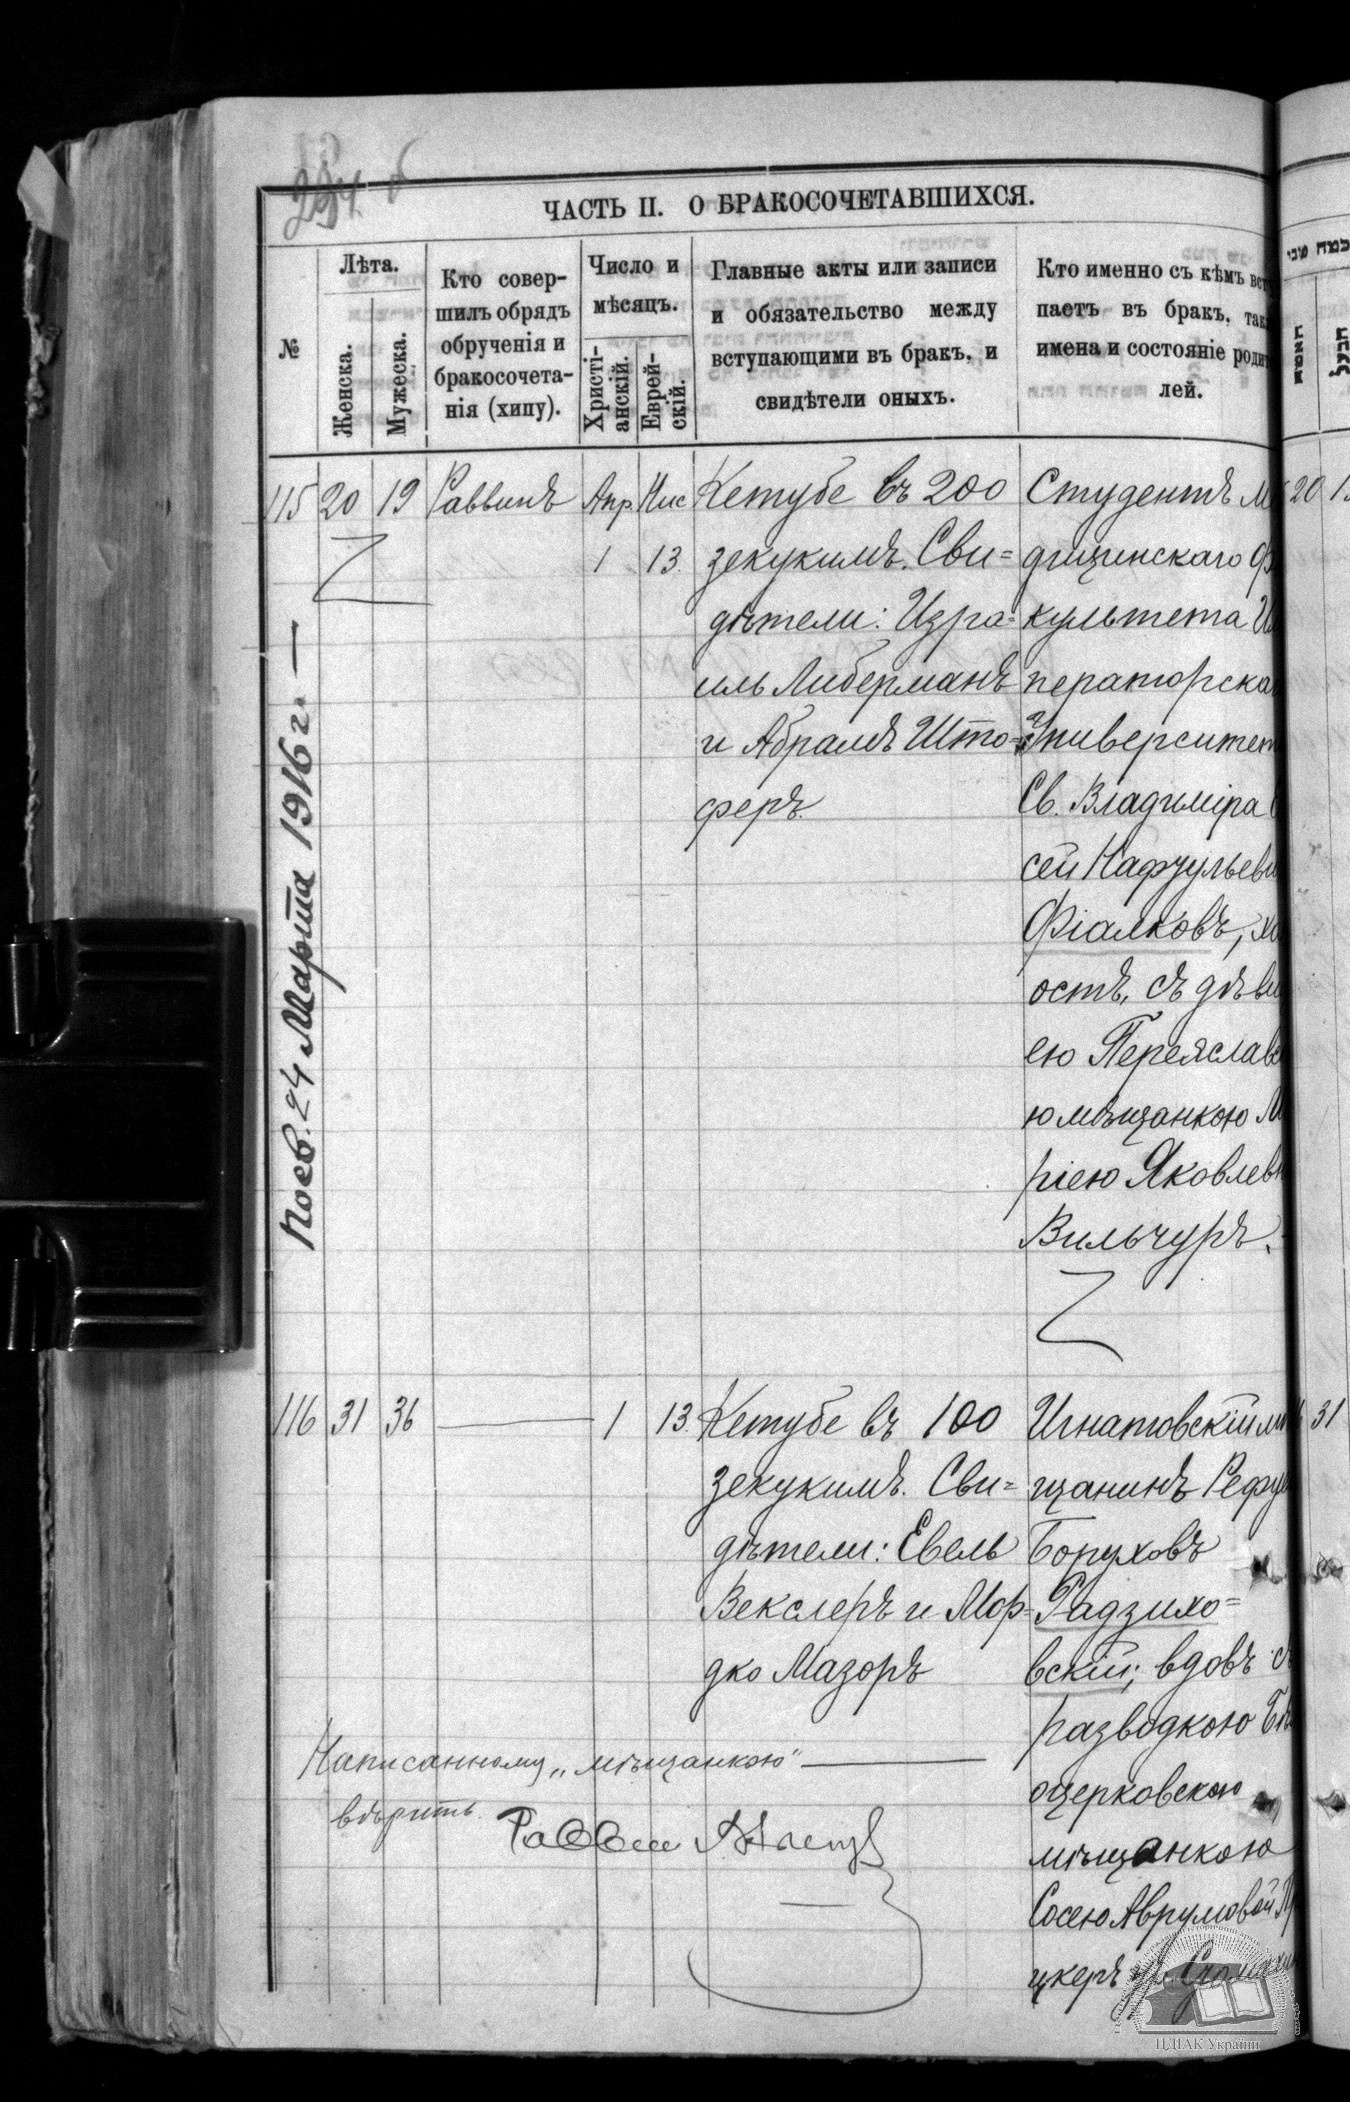 ЧАСТЬ II. О БРАКОСОЧЕТАВШИХСЯ.
№
Лѣта.
Женска.
Мужеска.
Кто совер-
шилъ обрядъ
обрученія и
бракосочета-
нія (хипу).
Число и
мѣсяцъ.
Христі-
анскій.
Еврей-
скій.
Главные акты или записи
и обязательство между
вступающими въ бракъ, и
свидѣтели оныхъ.
Кто именно съ кѣмъ вст
паетъ въ бракъ, так
имена и состояніе родит
лей.
115 20 19 Раввинъ Апр. Нис
1 13.
Кетубе въ 200
зекукимъ. Сви=
дѣтели: Изра=
иль Либерманъ
и Абрамъ Што=
феръ.
Студентъ М
дицинскаго Ф
культета И
ператорска
Университет
Св. Владиміра
сей Нафтульеви
Фіалковъ, хо
остъ, съ дѣви
ею Переяслав
ю мѣщанкою М
ріею Яковлевн
Вильчуръ.
24 Марта 1916 г. —
116 31 36 — 1 13.
Кетубе въ 100
зекукимъ. Сви=
дѣтели: Евель
Векслеръ и Мор=
дко Мазоръ
Игнатовскій мѣ
щанинъ Рефу
Боруховъ
Радзихо=
вскій; вдовъ съ
разводкою Бѣ
оцерковскою
мѣщанкою
Сосею Аврумовой
цкеръ
Написанному „мѣщанкою" —
вѣрить.
Раввин
20
31
ЦДІАК України